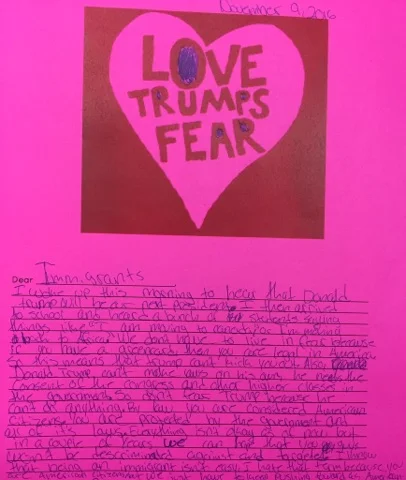 November 9, 2016
LOVE
TRUMPS
FEAR
Dear Immigrants
I woke up this morning to hear that Donald
Trump will be our next president. I then arrived
to school and heard a bunch of students saying
things like "I am moving to canada" or I'm moving
back to
We dont have to live in fear because
if you have a greencard, then you are legal in America
so this means that trump can't kick you out. Also
Donald Trump can't make laws on his own he needs the
consent of the congress and other higher classes in
the government. So dont fear Trump because he
cant do anything. By law you are considered American
Citizens. You are protected by the government and
all of its laws. Everything isn't okay as of now but
in a couple of years we can hope that you guys
won't be discriminated against and targeted. I know
that being an immigrant isn't easy. I hate that term because you
are American Citizens. We just have